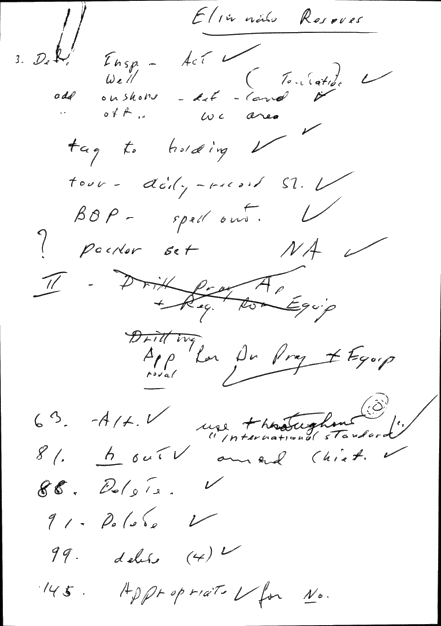 Eliminate Reserves
3. Def. Insp. - Act ✓
Well (Termination) ✓
add onshore - def - land ✓
" off " wc area
✓
tag to holding ✓
tour - daily - record S2. ✓
BOP - spell out. ✓
? packer set NA ✓
II - Drill prog Ap
+ Req. for Equip
Drilling
App for Dr Prog + Equip
roval
63. - Alt. ✓ use throughout
"international standard" ✓
81. h out ✓ amend Chief. ✓
88. Delete. ✓
91 - Delete ✓
99. delete (4) ✓
145. Appropriate ✓ for No.